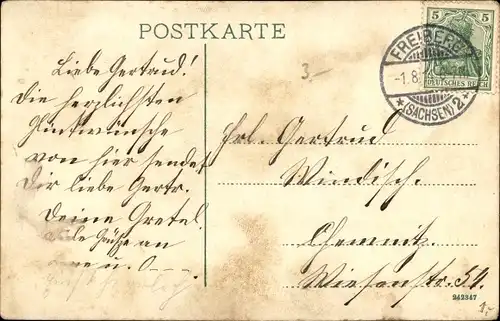 POSTKARTE
5 5
DEUTSCHES REICH
FREIBERG
-1.8.
*(SACHSEN)2*
3.-
Liebe Gertrud!
die herzlichsten
Glückwünsche
von hier sendet
Dir liebe Gertr.
Deine Gretel.
Viele Grüße an
u. O
Frl. Gertrud
Windisch.
Chemnitz.
Wiesenstr. 54.
242347